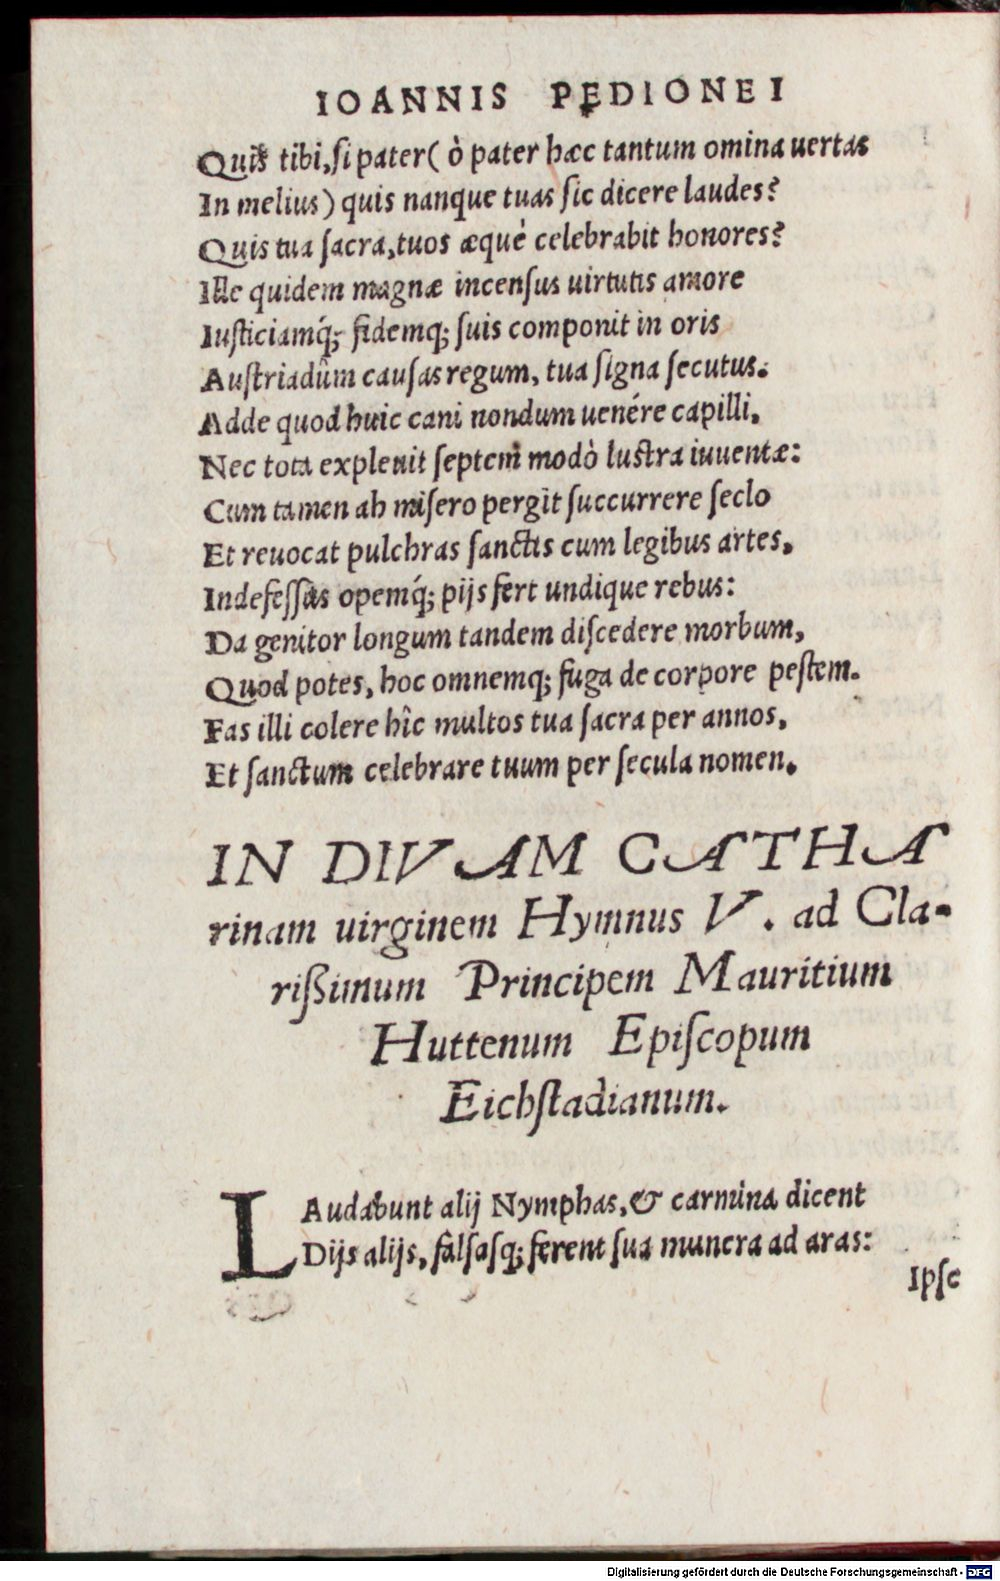 IOANNIS PEDIONEI
Quis tibi, si pater ( ò pater hæc tantum omina uertas
In melius) quis nanque tuas sic dicere laudes?
Quis tua sacra, tuos æquè celebrabit honores?
Ille quidem magnæ incensus uirtutis amore
Iusticiamq́; fidemq; suis componit in oris
Austriadûm causas regum, tua signa secutus.
Adde quod huic cani nondum uenére capilli,
Nec tota expleuit septem modò lustra iuuentæ:
Cum tamen ab misero pergit succurrere seclo
Et reuocat pulchras sanctis cum legibus artes,
Indefessus opemq́; pijs fert undique rebus:
Da genitor longum tandem discedere morbum,
Quod potes, hoc omnemq; fuga de corpore pestem.
Fas illi colere hîc multos tua sacra per annos,
Et sanctum celebrare tuum per secula nomen.
IN DIVAM CATHA
rinam uirginem Hymnus V. ad Cla-
rißimum Principem Mauritium
Huttenum Episcopum
Eichstadianum.
LAudabunt alij Nymphas, & carmina dicent
Dijs alijs, falsasq; ferent sua munera ad aras:
Ipse
Digitalisierung gefördert durch die Deutsche Forschungsgemeinschaft - DFG